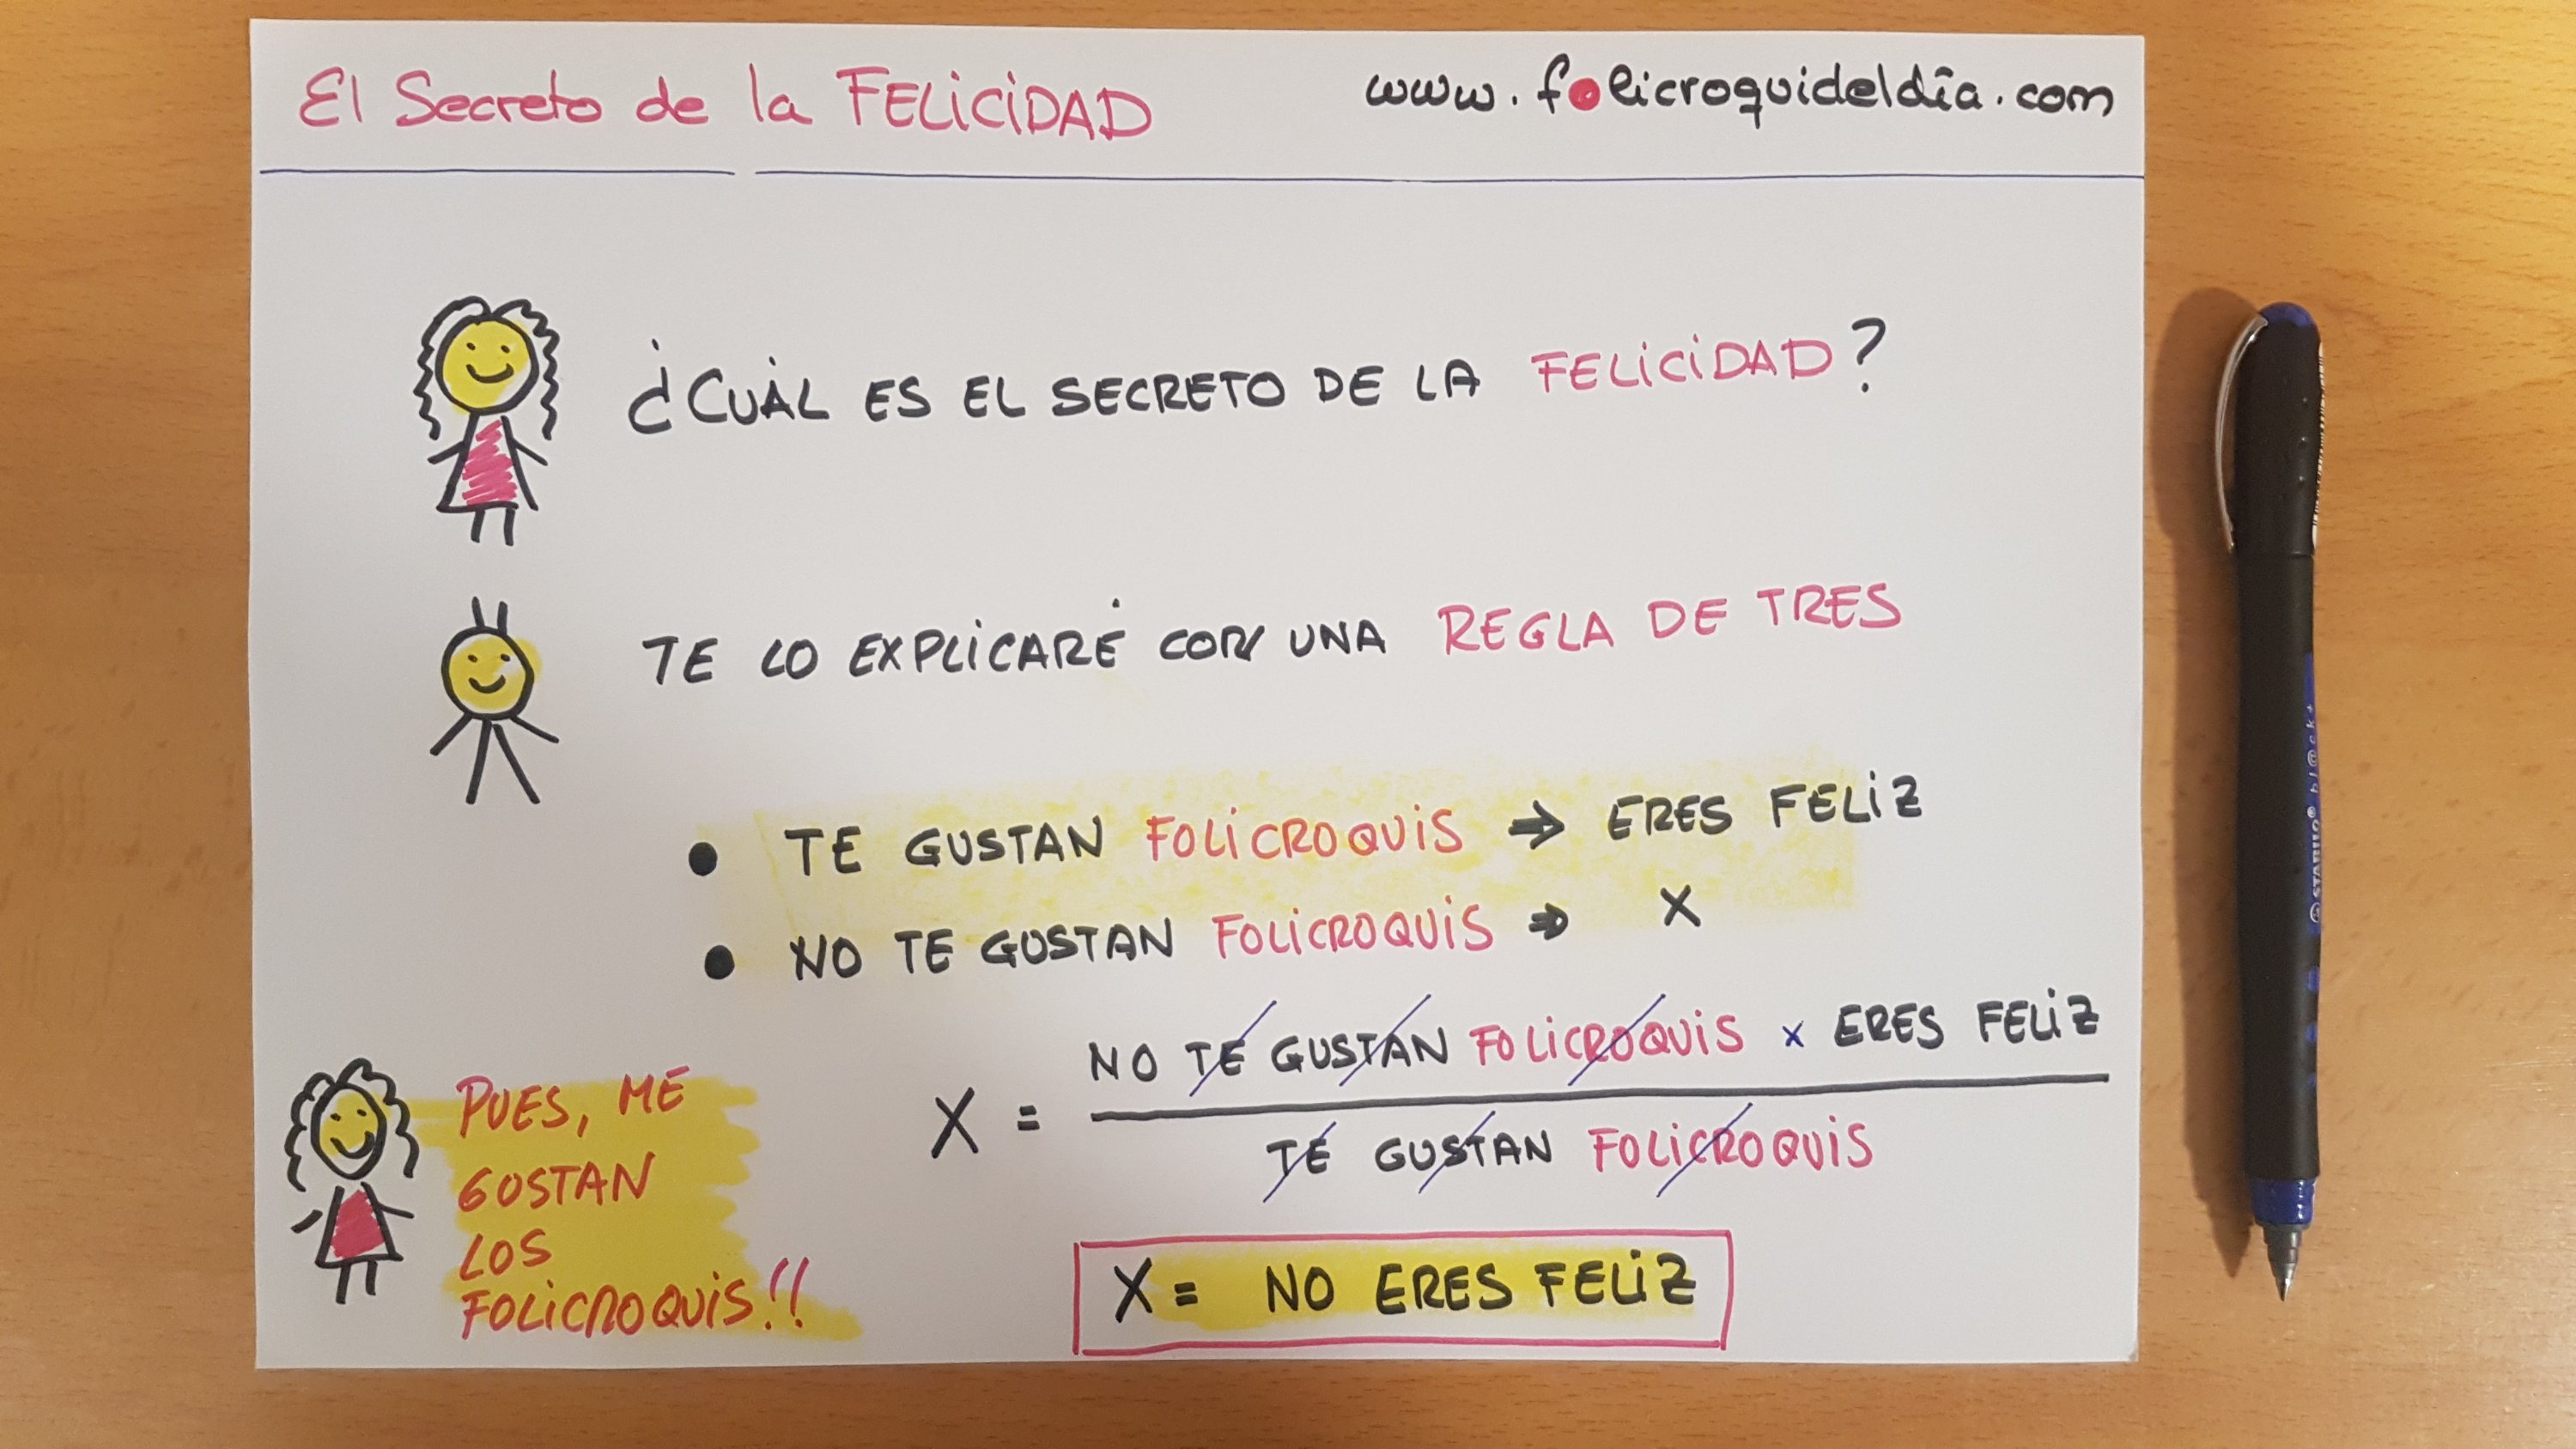 El Secreto de la FELiCiDAD
www.folicroquideldia.com
¿CUÁL ES EL SECRETO DE LA FELiCiDAD?
TE LO EXPLiCARÉ CON UNA REGLA DE TRES
• TE GUSTAN FOLiCROQUiS ⇒ ERES FELiZ
• NO TE GUSTAN FOLiCROQUiS ⇒ X
NO TE GUSTAN FOLiCROQUiS x ERES FELiZ
X =
TE GUSTAN FOLiCROQUiS
X = NO ERES FELiZ
PUES, ME
GUSTAN
LOS
FOLiCROQUiS!!
STABILO® bl@ck+